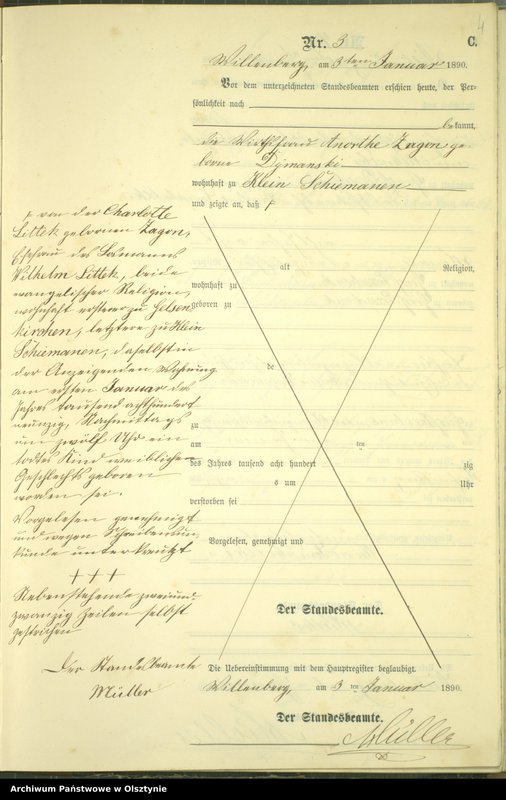 4
Nr. 3 C.
Willenberg, am 3ten Januar 1890.
Vor dem unterzeichneten Standesbeamten erschien heute, der Per-
sönlichkeit nach
bekannt,
die Wirthsfrau Anorthe Zagon ge-
borne Dymanski
wohnhaft zu Klein Schiemanen
und zeigte an, daß
alt Religion,
wohnhaft zu
geboren zu
de
zu
am ten
des Jahres tausend acht hundert zig
s um Uhr
verstorben sei
Vorgelesen, genehmigt und
Der Standesbeamte.
von der Charlotte
Littek geborenen Zagon,
Ehefrau des
Wilhelm Littek, beide
evangelischer Religion,
wohnhaft ersterer zu Gelsen
kirchen, letztere zu Klein
Schiemanen, daselbst in
der Anzeigenden Wohnung
am ersten Januar des
Jahres tausend achthundert
neunzig, Nachmittags
um zwölf Uhr ein
todtes Kind weiblichen
Geschlechts geboren
worden sei.
Vorgelesen genehmigt
und wegen Schreibensun
kunde unterkreuzt
+++
Nebenstehende zweiund
zwanzig Zeilen selbst
gestrichen
Der Standesbeamte
Müller
Die Uebereinstimmung mit dem Hauptregister beglaubigt.
Willenberg, am 3 ten Januar 1890.
Der Standesbeamte.
Müller
Archiwum Państwowe w Olsztynie